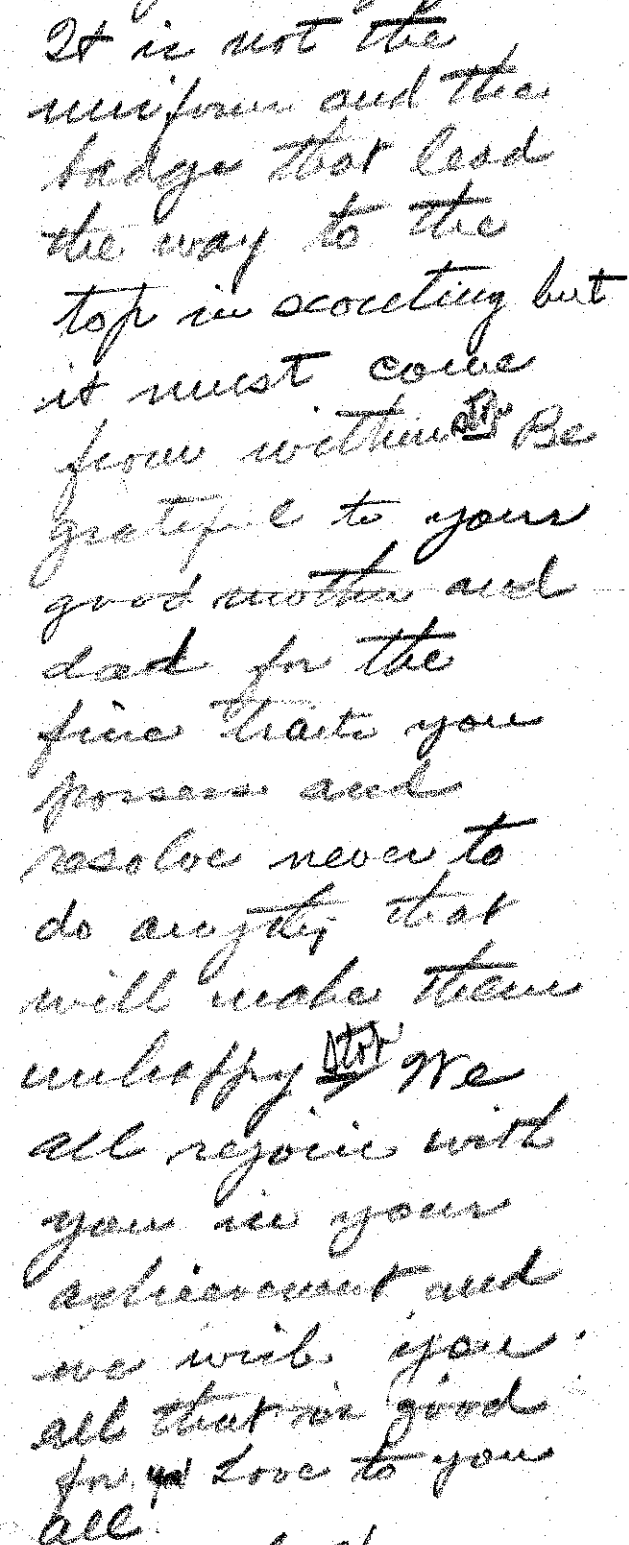 It is not the
uniform and the
badge that lead
the way to the
top in scouting but
it must come
from within Be
grateful to your
good mother and
dad for the
fine traits you
possess and
resolve never to
do anything that
will make them
unhappy Stop We
all rejoice with
you in your
achievement and
we wish you
all that is good
for Love to you
all